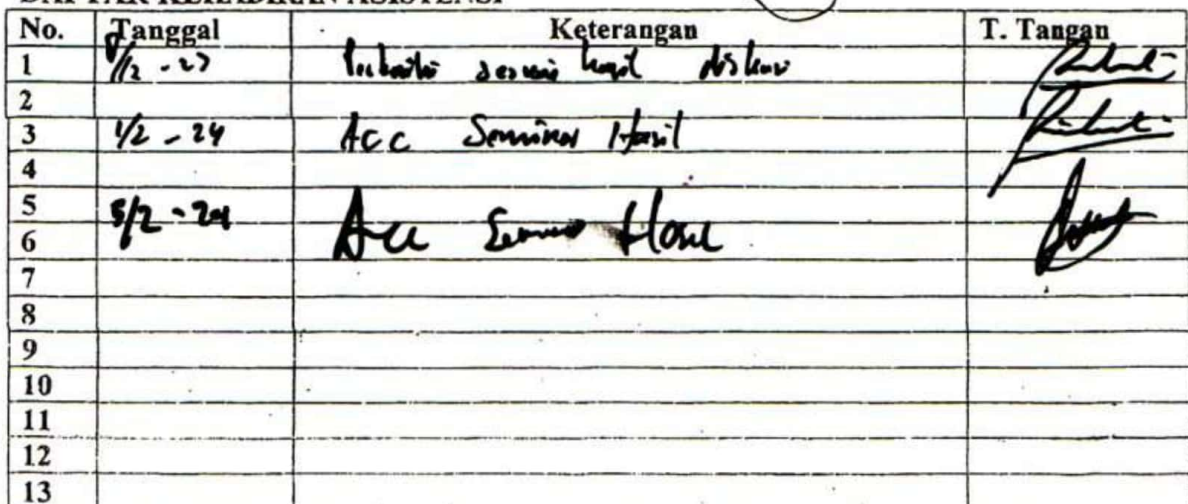 DAFTAR KEHADIRAN ASISTENSI
No. Tanggal Keterangan T. Tangan
1 sesuai hasil diskusi
2
3 1/2 - 24 Acc Seminar Hasil
4
5 5/2 - 24 Acc Seminar Hasil
6
7
8
9
10
11
12
13